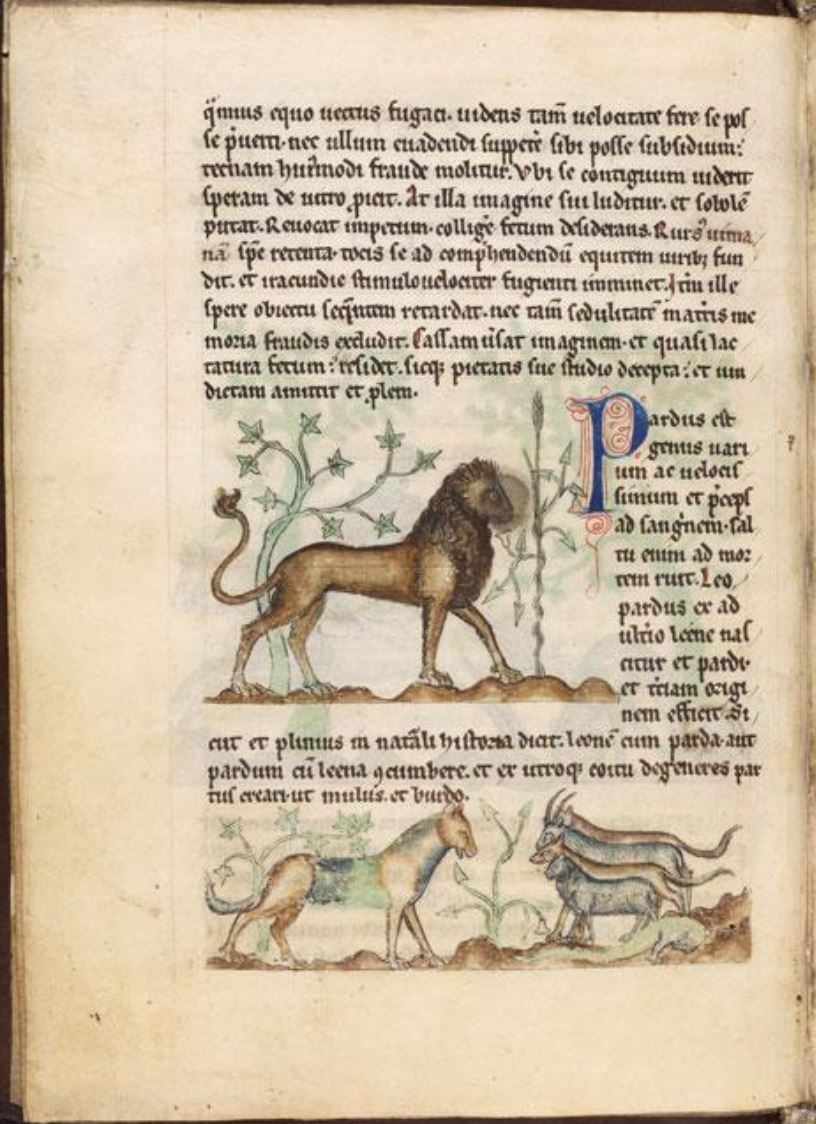 q̄muis equo uectus fugaci. uidens tam̄ uelocitate fere se pos
se p̄uerti. nec ullum euadendi suppetē sibi posse subsidium:
tecnam huꝰmodi fraude molitur. Vbi se contiguum uiderit
speram de uitro ꝓicit. At illa imagine sui luditur. et sobolē
putat. Reuocat impetum. colligē fetum desiderans. Rursꝰ
nā spē retenta. tocis se ad comp̄hendendū equitem uirib; fun
dit. et iracundie stimulo uelociter fugienti imminet. Itm̄ ille
spere obiectu seq̄ntem retardat. nec tam̄ sedulitatē matris me
moria fraudis excludit. Cassam ūsat imaginem. et quasi lac
tatura fetum: residet. sicq; pietatis sue studio decepta: et uin
dictam amittit et ꝓlem.
Pardus est
genus uari
um ac uelocis
simum et p̄ceps
ad sanḡnem. sal
tu enim ad mor
tem ruit. Leo
pardus ex ad
ultīo leene nas
citur et pardi.
et t̄ciam origi
nem efficit. Si
cut et plinius in natāli historia dicit. leonē cum parda. aut
pardum cū leena ꝯcumbere. et ex utroq; coitu degeneres par
tus creari. ut mulus. et burdo.